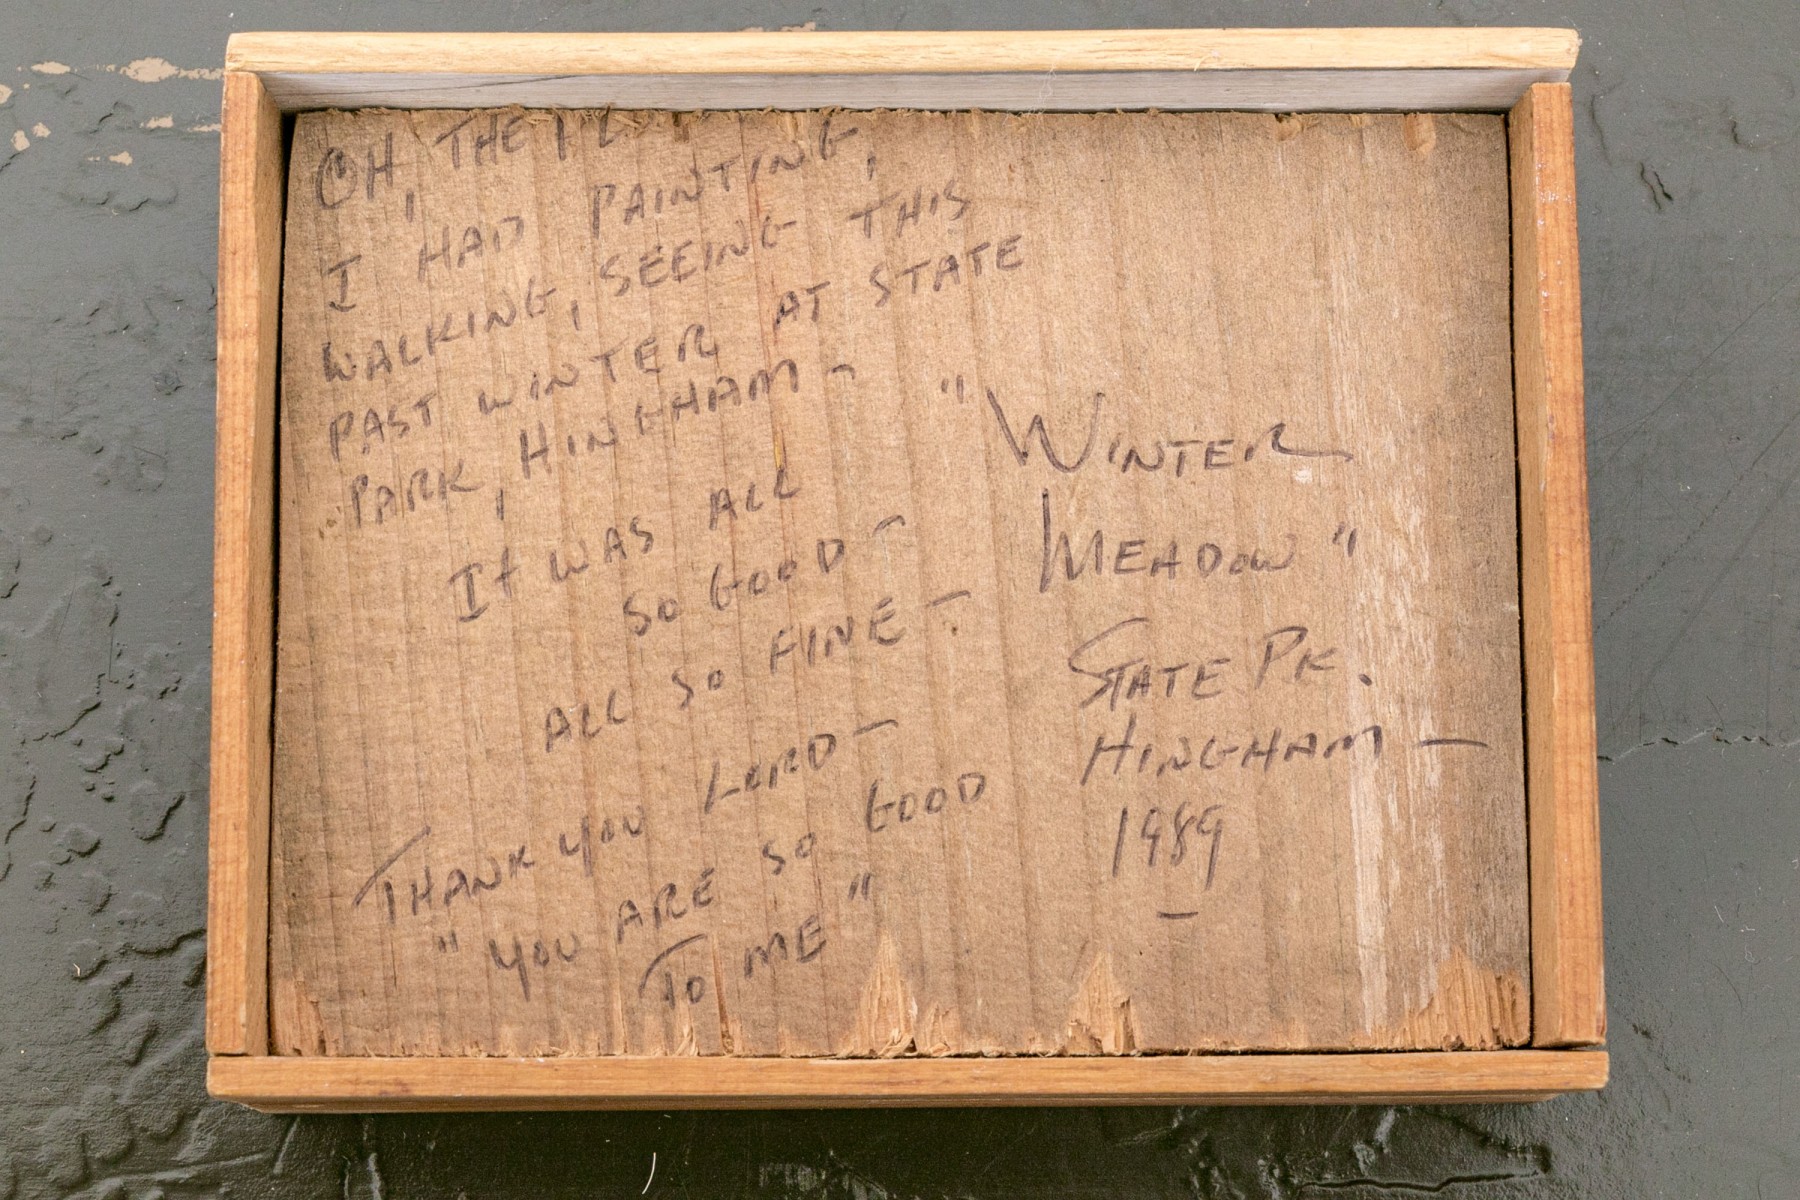 OH, THE
I HAD PAINTING,
WALKING, SEEING THIS
PAST WINTER AT STATE
PARK, HINGHAM -
It WAS ALL
SO GOOD -
ALL SO FINE -
THANK YOU LORD -
"YOU ARE SO GOOD
TO ME"
"WINTER
MEADOW"
STATE PK.
HINGHAM -
1989
-